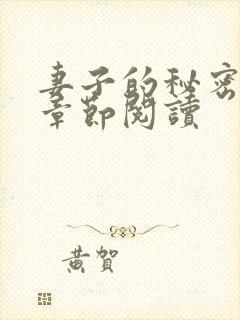 妻子的秘密
章節閱讀
黃賀